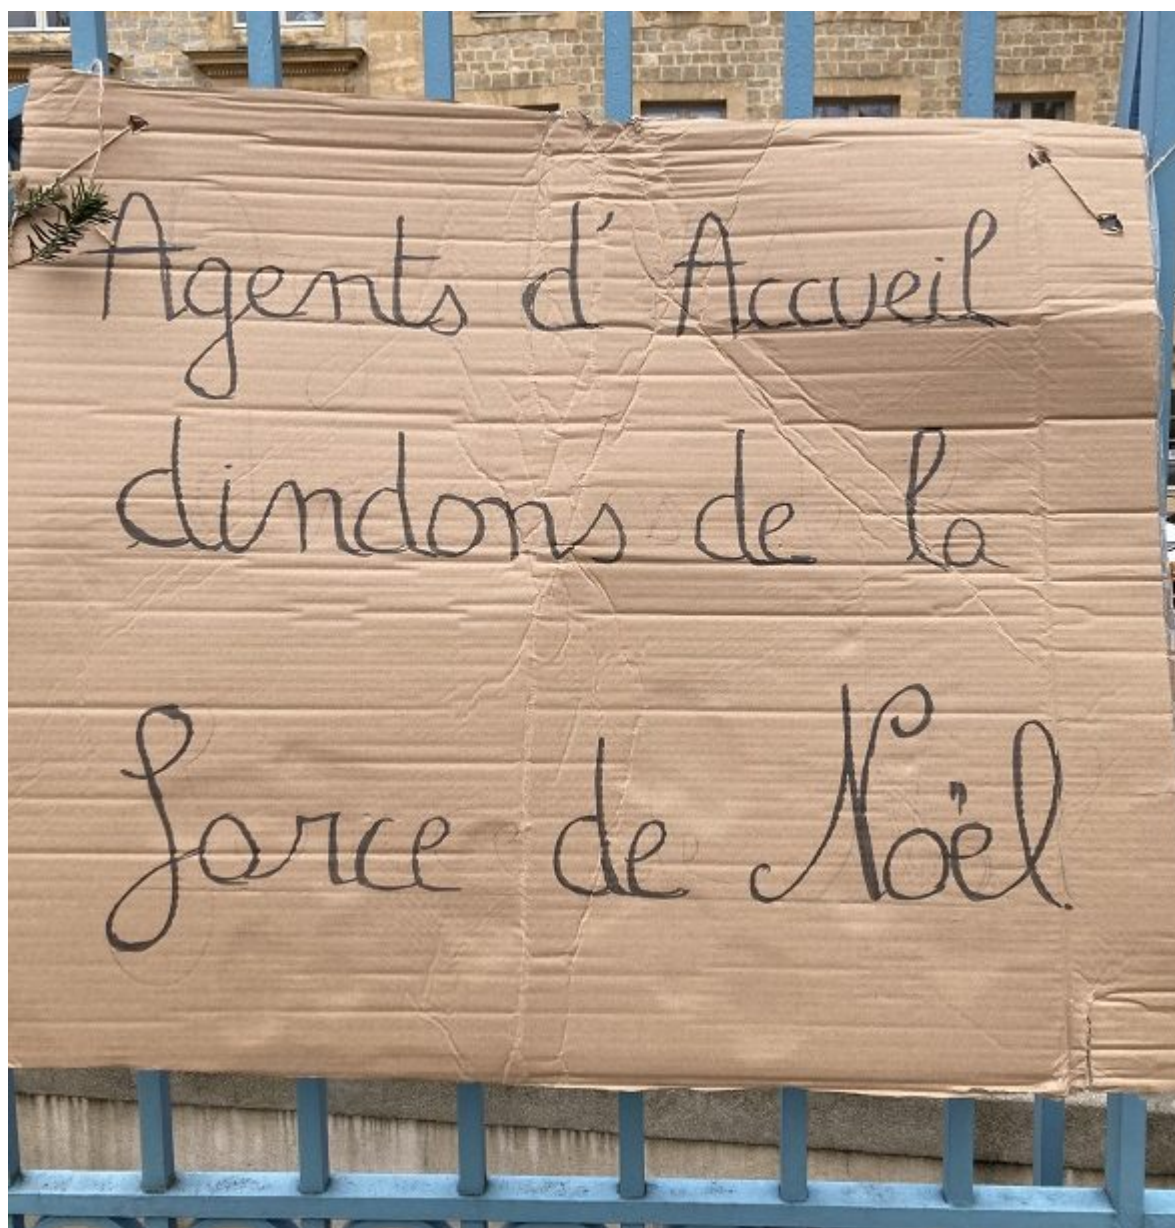 Agents d'Accueil
dindons de la
farce de Noël